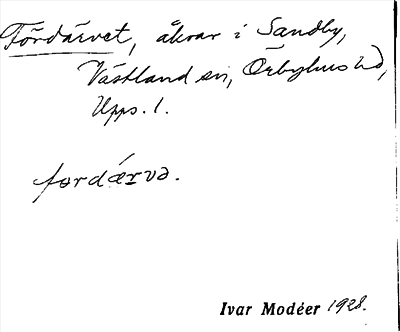 Fördärvet, åkrar i Sandby,
Västland sn, Örbyhus hd,
Upps. l.
fordǽrvə.
Ivar Modéer 1928.